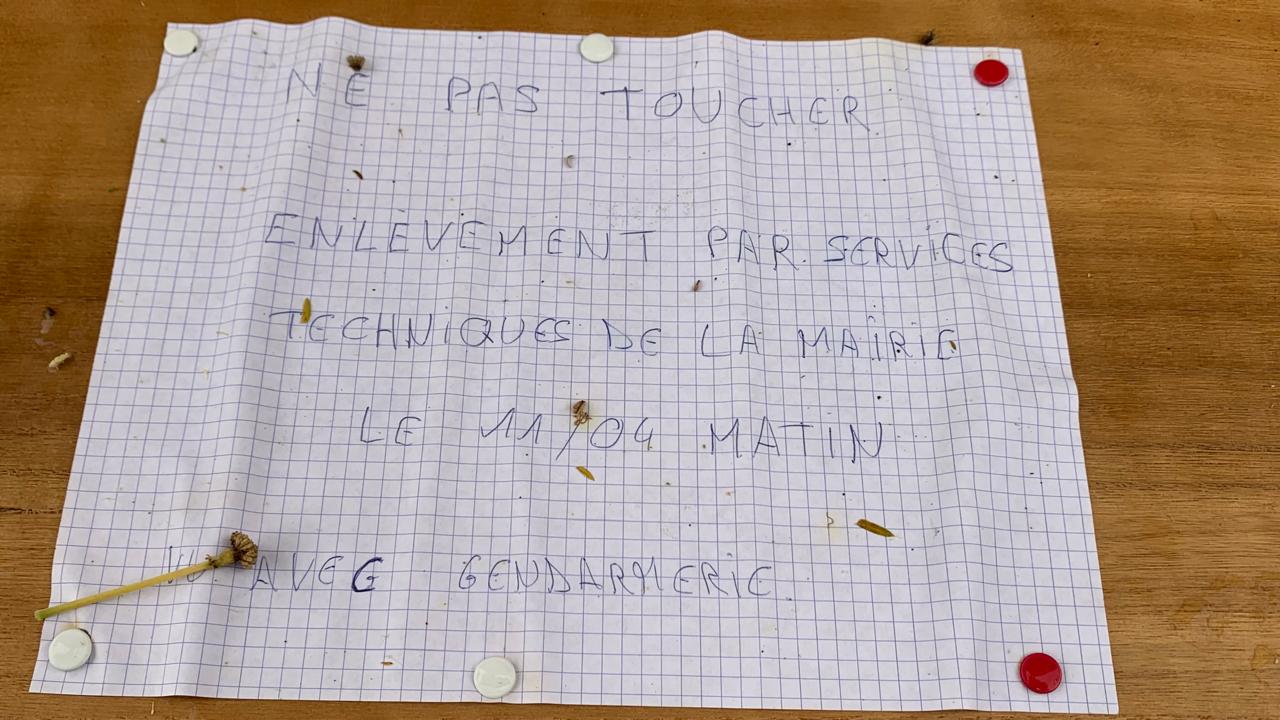 NE PAS TOUCHER
ENLÈVEMENT PAR SERVICES
TECHNIQUES DE LA MAIRIE
LE 11/04 MATIN
VU AVEC GENDARMERIE